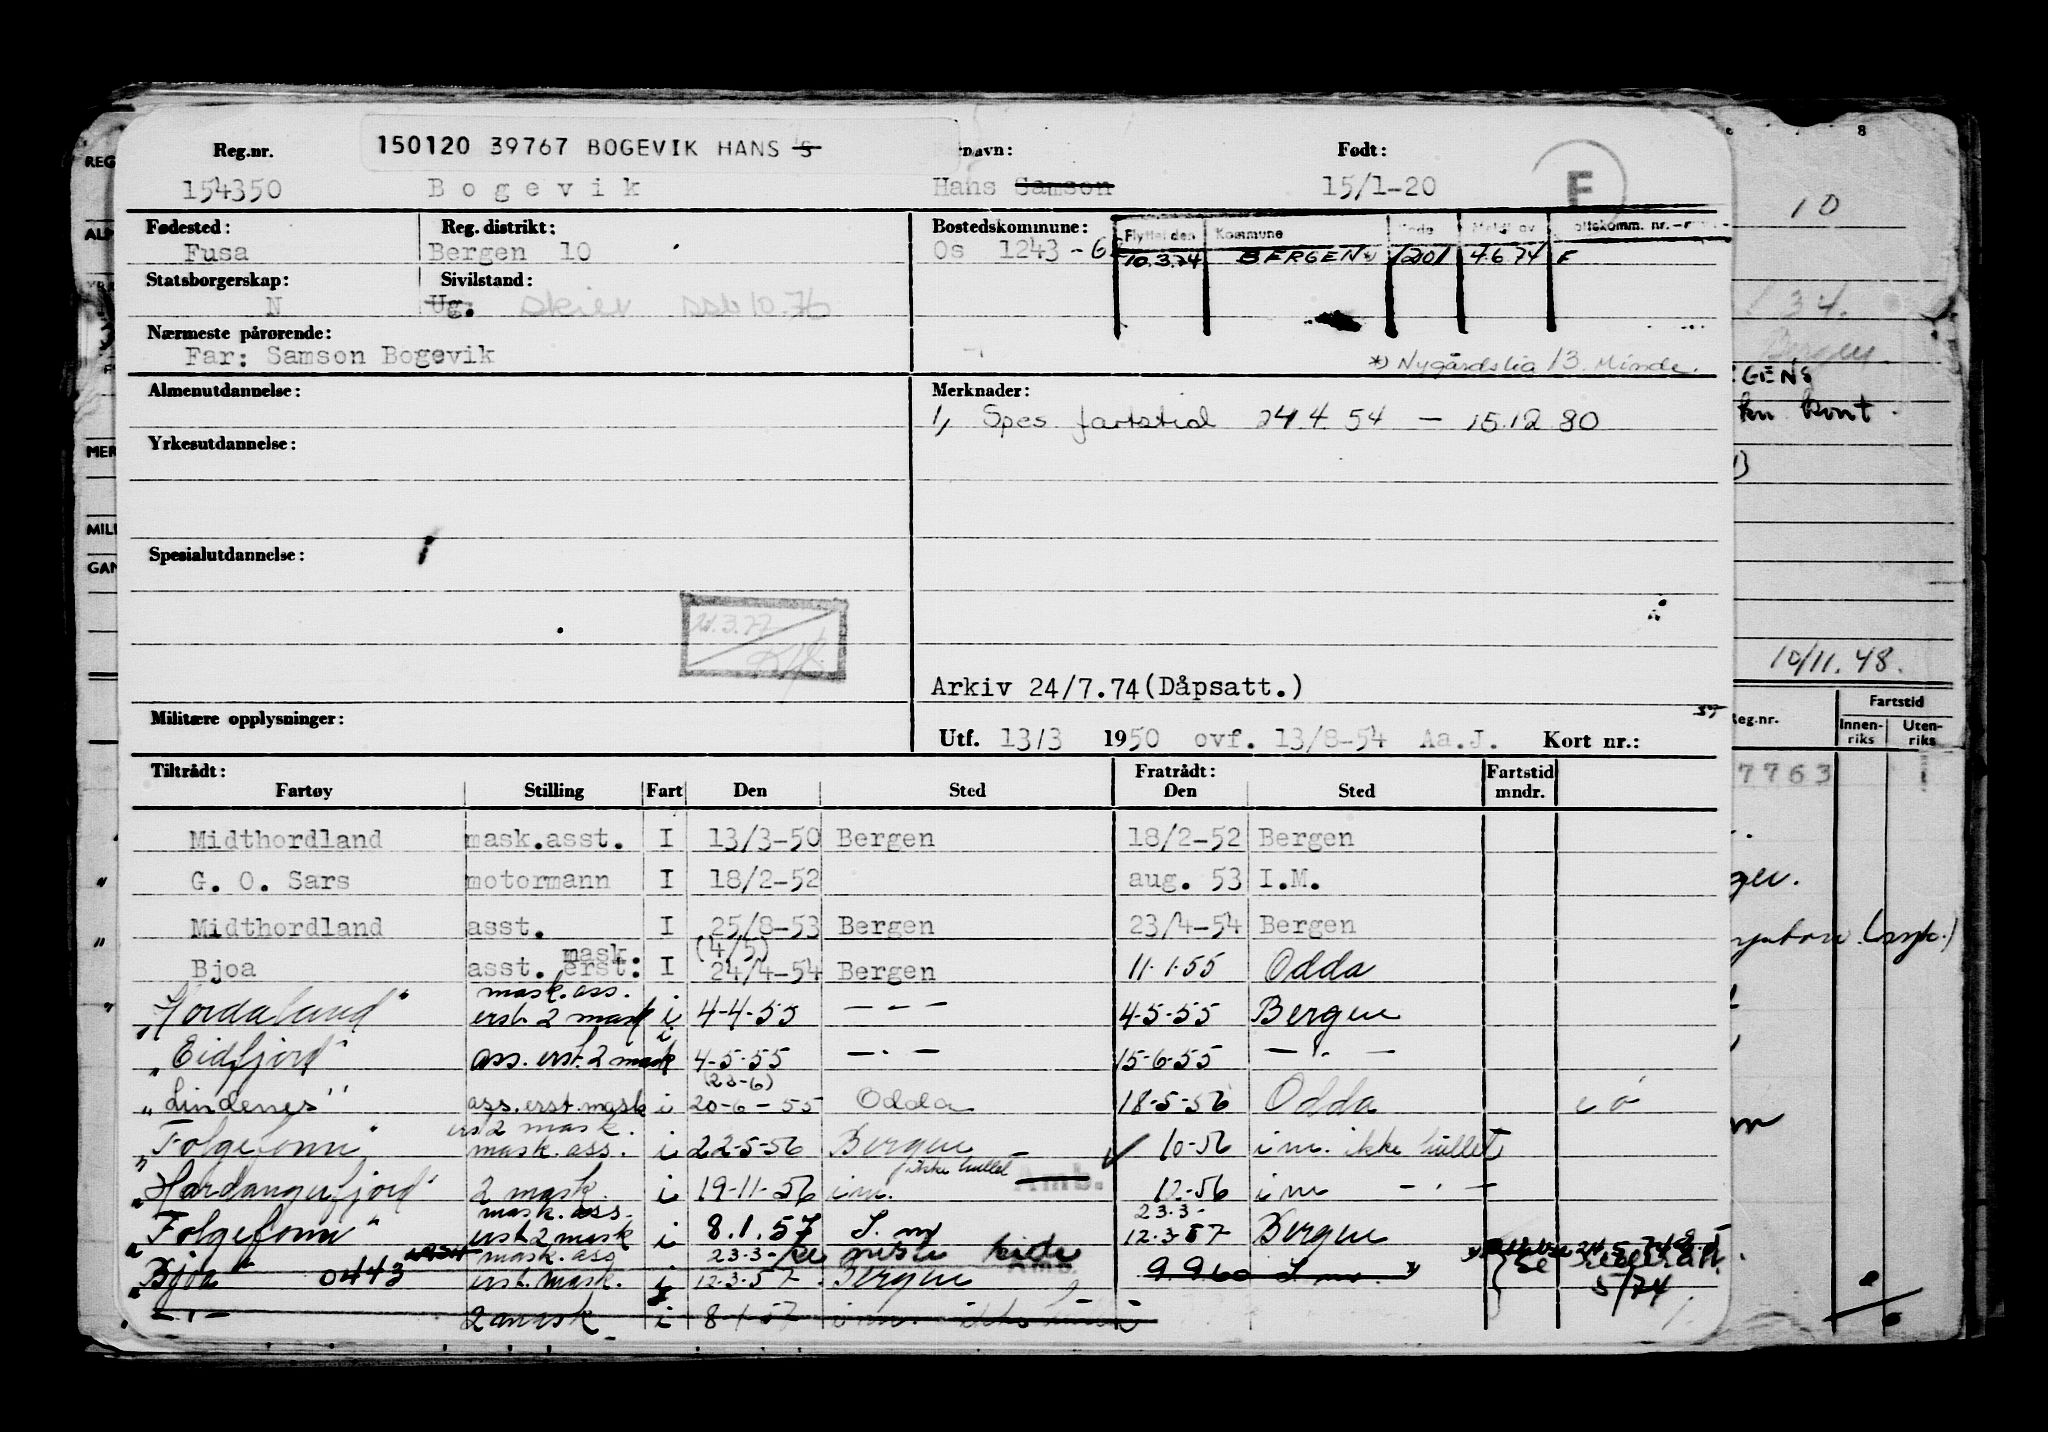 Reg.nr. 150120 39767 BOGEVIK HANS S navn: Født: F
154350 Bogevik Hans Samson 15/1-20
Fødested: Reg. distrikt: Bostedskommune: Flyttet den Kommune
Fusa Bergen 10 Os 1243 10.3.74 BERGEN *) 1201 4.6.74 F
Statsborgerskap: Sivilstand:
N Ug. skilt 10.76
Nærmeste pårørende:
Far: Samson Bogevik
*) Nygårdslia 13. Minde.
Almenutdannelse: Merknader:
1, Spes. fartstid 24 4 54 — 15.12 80
Yrkesutdannelse:
Spesialutdannelse:
21.3.77
Arkiv 24/7.74 (Dåpsatt.)
Militære opplysninger:
Utf. 13/3 1950 ovf. 13/8-54 Aa.J. Kort nr.:
Tiltrådt: Fratrådt: Fartstid
Fartøy Stilling Fart Den Sted Den Sted mndr.
Midthordland mask.asst. I 13/3-50 Bergen 18/2-52 Bergen
" G. O. Sars motormann I 18/2-52 aug. 53 I.M.
Midthordland asst. I 25/8-53 Bergen 23/4-54 Bergen
" mask. (4/5)
Bjoa asst. erst. I 24/4-54 Bergen 11.1.55 Odda
mask. ass.
"Hordaland" erst. 2 mask i 4-4-55 — " — 4-5-55 Bergen
"Eidfjord" ass. erst. 2 mask i 4-5-55 — " — 15-6-55 — " —
(23-6)
"Lindenes" ass. erst. mask i 20-6-55 Odda 18-5-56 Odda
erst 2 mask.
"Folgefonn" mask. ass. i 22-5-56 Bergen 10-56 i m. ikke hullet
ikke hullet Amb.
"Hardangerfjord" 2 mask. i 19-11-56 i m. 12-56 i m — " —
mask. ass. 23.3-
"Folgefonn" erst 2 mask i 8.1.57 I. m 12-3-57 Bergen
mask. ass 23-3-
"Bjoa" 0443 erst. mask. i 12-3-57 Bergen 9.9.60 I. m.
5/74
— " — 2 mask i
REG
ALP
MER
MILI
GAN
8
10
34.
Bergen
10/11.48.
Reg.nr. Fartstid
Innenriks Utenriks
7763